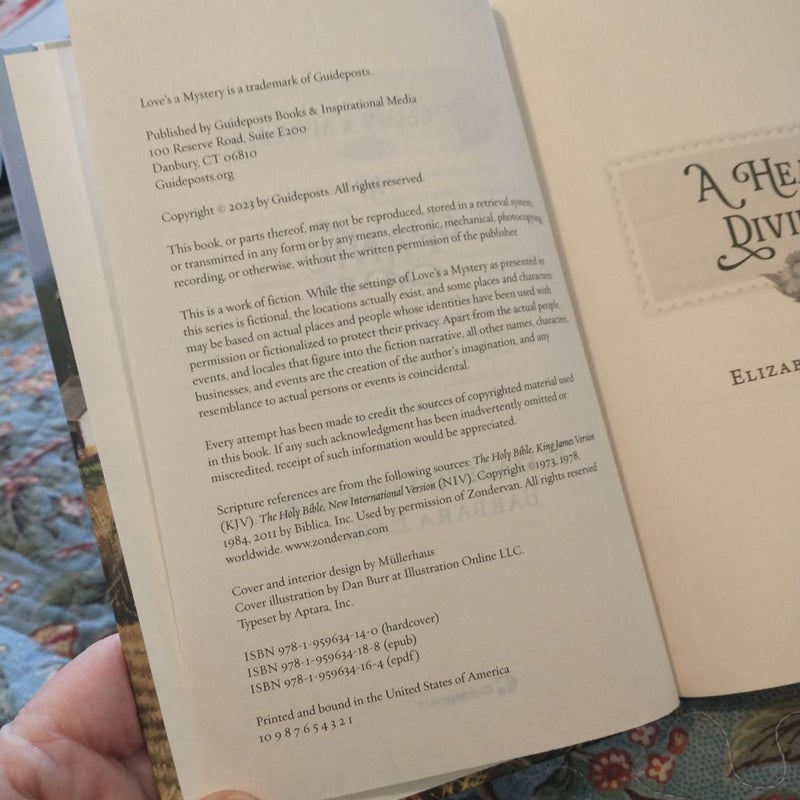 Love's a Mystery is a trademark of Guideposts.
Published by Guideposts Books & Inspirational Media
100 Reserve Road, Suite E200
Danbury, CT 06810
Guideposts.org
Copyright © 2023 by Guideposts. All rights reserved.
This book, or parts thereof, may not be reproduced, stored in a retrieval system,
or transmitted in any form or by any means, electronic, mechanical, photocopying,
recording, or otherwise, without the written permission of the publisher.
This is a work of fiction. While the settings of Love's a Mystery as presented in
this series is fictional, the locations actually exist, and some places and characters
may be based on actual places and people whose identities have been used with
permission or fictionalized to protect their privacy. Apart from the actual people,
events, and locales that figure into the fiction narrative, all other names, characters,
businesses, and events are the creation of the author's imagination, and any
resemblance to actual persons or events is coincidental.
Every attempt has been made to credit the sources of copyrighted material used
in this book. If any such acknowledgment has been inadvertently omitted or
miscredited, receipt of such information would be appreciated.
Scripture references are from the following sources: The Holy Bible, King James Version
(KJV). The Holy Bible, New International Version (NIV). Copyright ©1973, 1978,
1984, 2011 by Biblica, Inc. Used by permission of Zondervan. All rights reserved
worldwide. www.zondervan.com
Cover and interior design by Müllerhaus
Cover illustration by Dan Burr at Illustration Online LLC.
Typeset by Aptara, Inc.
ISBN 978-1-959634-14-0 (hardcover)
ISBN 978-1-959634-18-8 (epub)
ISBN 978-1-959634-16-4 (epdf)
Printed and bound in the United States of America
10 9 8 7 6 5 4 3 2 1
A HE
DIVI
ELIZAB